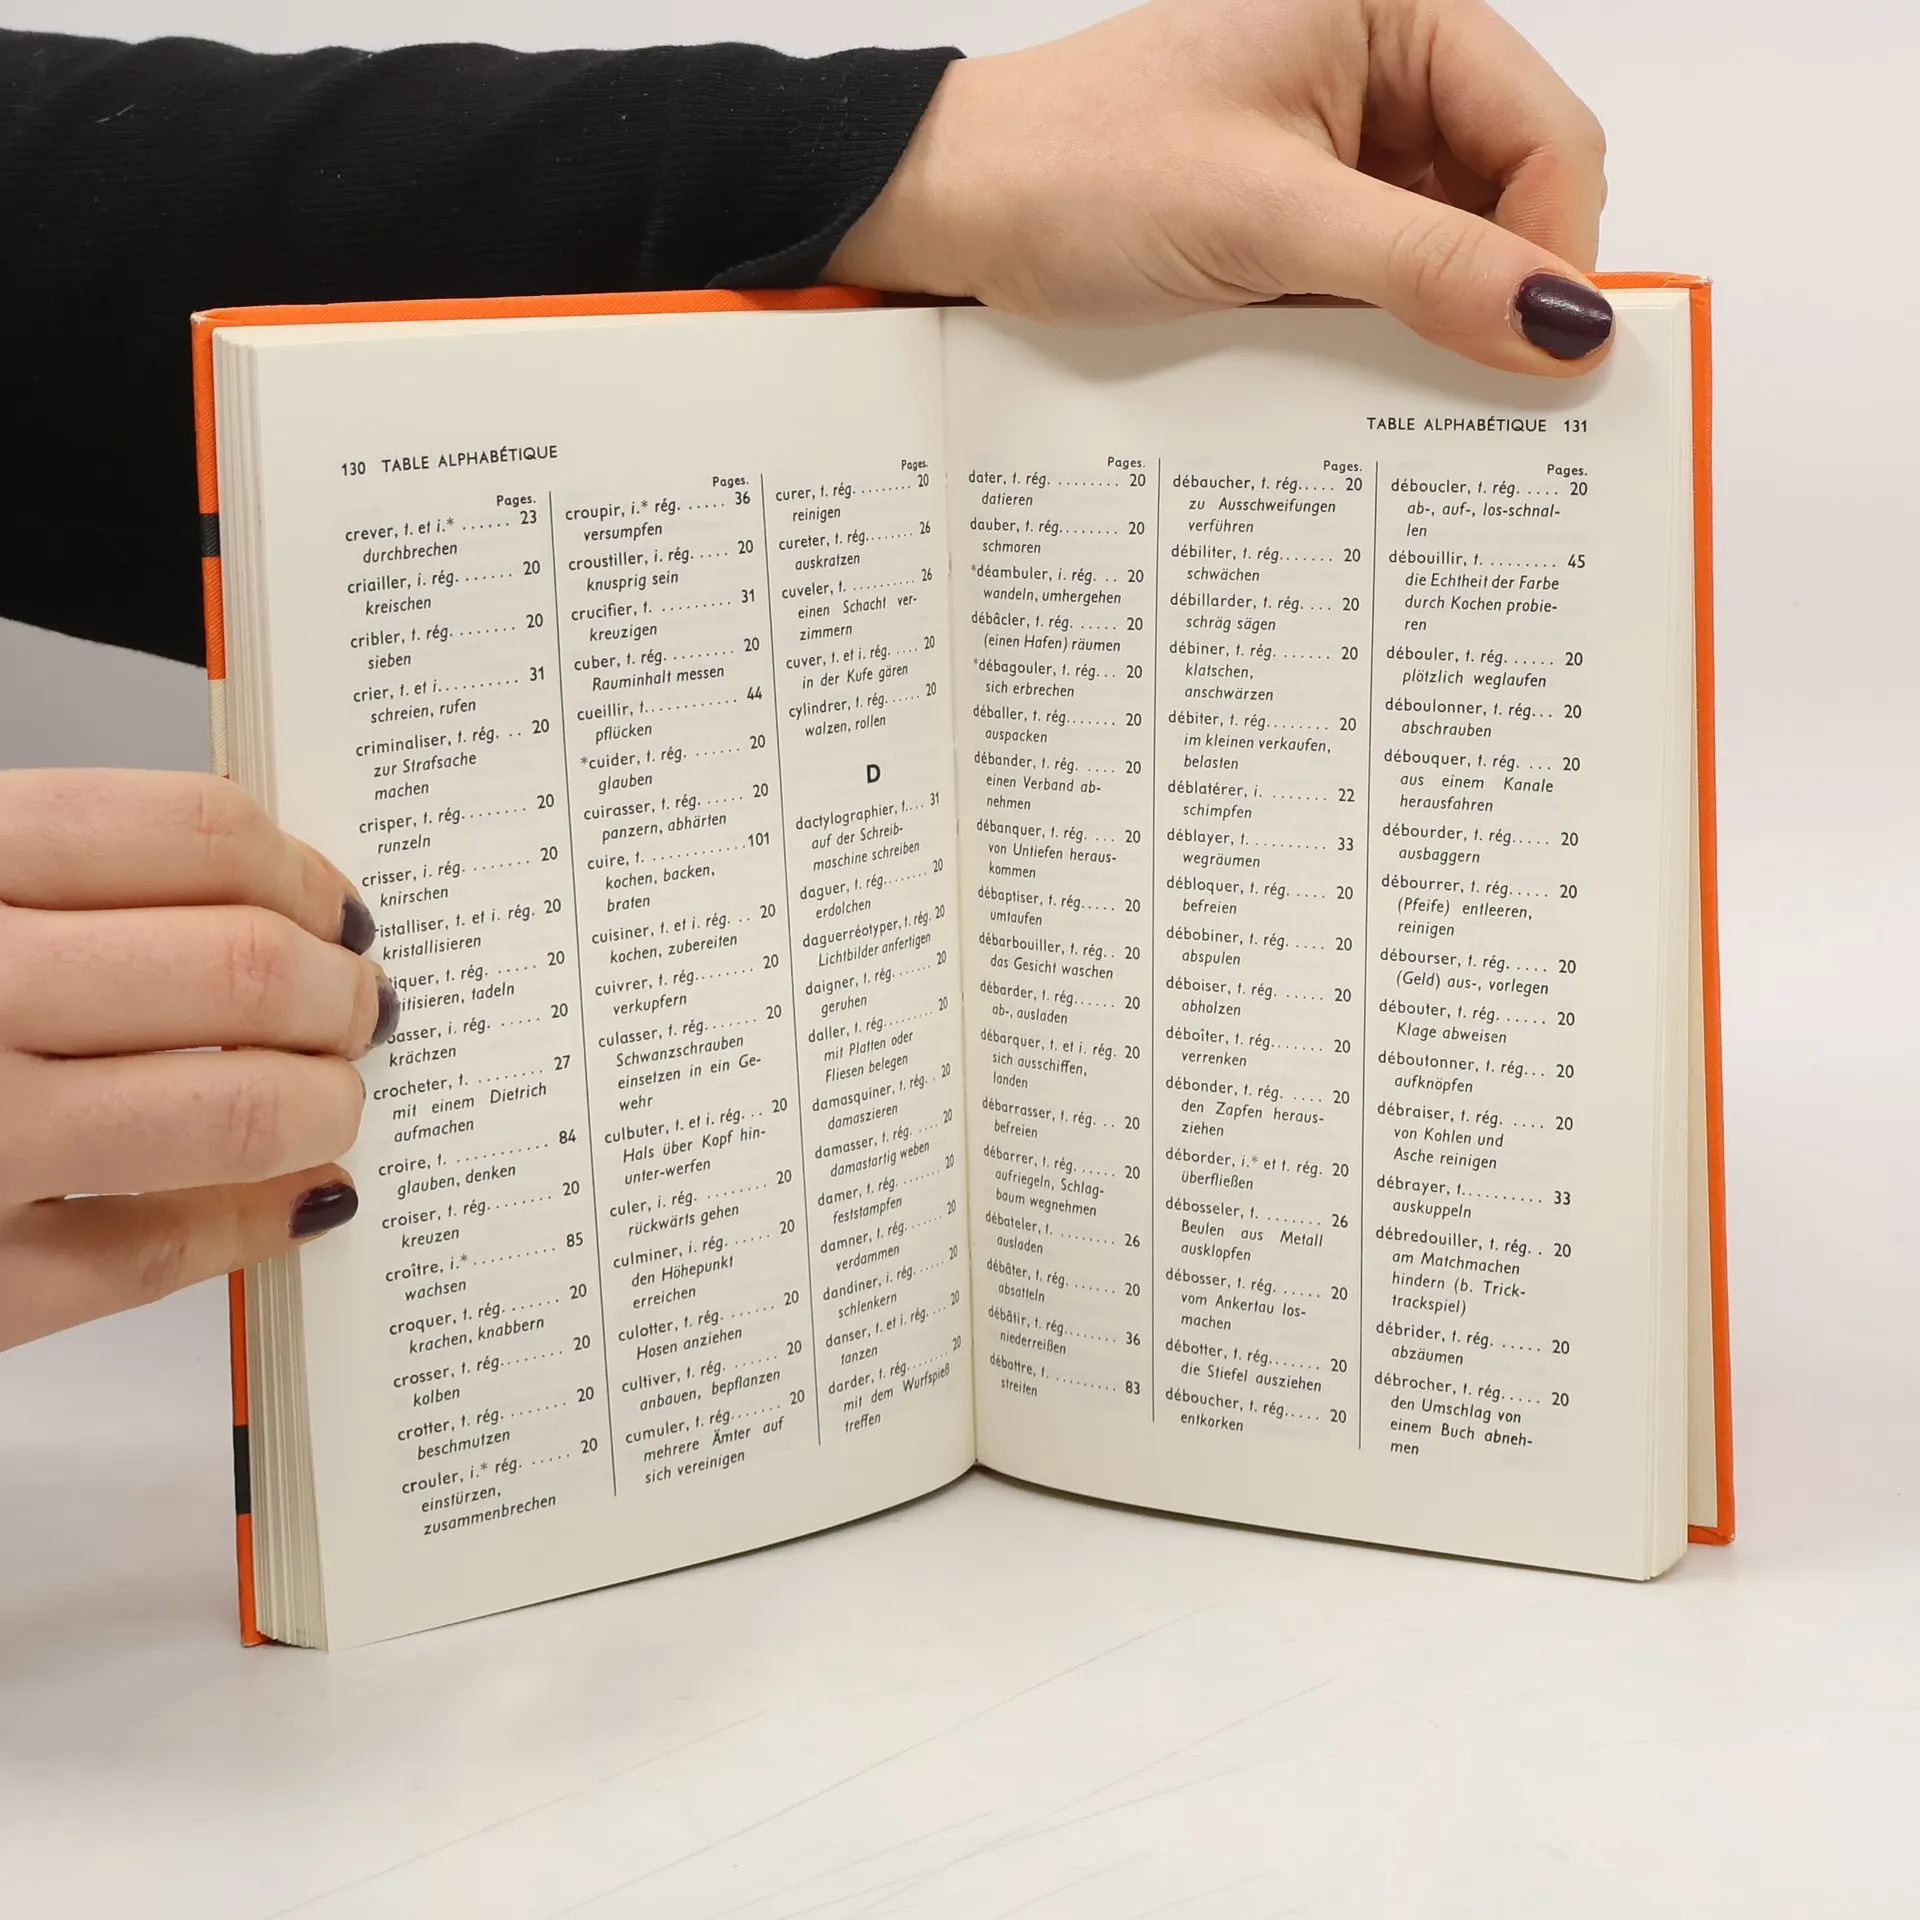 130 TABLE ALPHABÉTIQUE
Pages.
crever, t. et i.* ...... 23
durchbrechen
criailler, i. rég. ....... 20
kreischen
cribler, t. rég. ........ 20
sieben
crier, t. et i. .......... 31
schreien, rufen
criminaliser, t. rég. .. 20
zur Strafsache
machen
crisper, t. rég. ........ 20
runzeln
crisser, i. rég. ........ 20
knirschen
istalliser, t. et i. rég. 20
kristallisieren
iquer, t. rég. ...... 20
itisieren, tadeln
asser, i. rég. ...... 20
krächzen
crocheter, t. ........ 27
mit einem Dietrich
aufmachen
croire, t. ........... 84
glauben, denken
croiser, t. rég. ....... 20
kreuzen
croître, i.* ......... 85
wachsen
croquer, t. rég. ....... 20
krachen, knabbern
crosser, t. rég. ....... 20
kolben
crotter, t. rég. ....... 20
beschmutzen
crouler, i.* rég. ...... 20
einstürzen,
zusammenbrechen
Pages.
croupir, i.* rég. ...... 36
versumpfen
croustiller, i. rég. .... 20
knusprig sein
crucifier, t. ......... 31
kreuzigen
cuber, t. rég. ........ 20
Rauminhalt messen
cueillir, t. ........... 44
pflücken
*cuider, t. rég. ...... 20
glauben
cuirasser, t. rég. ...... 20
panzern, abhärten
cuire, t. ............ 101
kochen, backen,
braten
cuisiner, t. et i. rég. .. 20
kochen, zubereiten
cuivrer, t. rég. ....... 20
verkupfern
culasser, t. rég. ....... 20
Schwanzschrauben
einsetzen in ein Ge-
wehr
culbuter, t. et i. rég. .. 20
Hals über Kopf hin-
unter-werfen
culer, i. rég. ........ 20
rückwärts gehen
culminer, i. rég. ..... 20
den Höhepunkt
erreichen
culotter, t. rég. ...... 20
Hosen anziehen
cultiver, t. rég. ....... 20
anbauen, bepflanzen
cumuler, t. rég. ....... 20
mehrere Ämter auf
sich vereinigen
Pages.
curer, t. rég. ......... 20
reinigen
cureter, t. rég. ........ 26
auskratzen
cuveler, t. .......... 26
einen Schacht ver-
zimmern
cuver, t. et i. rég. .... 20
in der Kufe gären
cylindrer, t. rég. ...... 20
walzen, rollen
D
dactylographier, t. ... 31
auf der Schreib-
maschine schreiben
daguer, t. rég. ....... 20
erdolchen
daguerréotyper, t. rég. 20
Lichtbilder anfertigen
daigner, t. rég. ....... 20
geruhen
daller, t. rég. ........ 20
mit Platten oder
Fliesen belegen
damasquiner, t. rég. .. 20
damaszieren
damasser, t. rég. .... 20
damastartig weben
damer, t. rég. ....... 20
feststampfen
damner, t. rég. ...... 20
verdammen
dandiner, i. rég. ..... 20
schlenkern
danser, t. et i. rég. ... 20
tanzen
darder, t. rég. ....... 20
mit dem Wurfspieß
treffen
TABLE ALPHABÉTIQUE 131
Pages.
dater, t. rég. ........ 20
datieren
dauber, t. rég. ....... 20
schmoren
*déambuler, i. rég. .. 20
wandeln, umhergehen
débâcler, t. rég. ..... 20
(einen Hafen) räumen
*débagouler, t. rég. .. 20
sich erbrechen
déballer, t. rég. ...... 20
auspacken
débander, t. rég. .... 20
einen Verband ab-
nehmen
débanquer, t. rég. ... 20
von Untiefen heraus-
kommen
débaptiser, t. rég. .... 20
umtaufen
débarbouiller, t. rég. . 20
das Gesicht waschen
débarder, t. rég. ..... 20
ab-, ausladen
débarquer, t. et i. rég. 20
sich ausschiffen,
landen
débarrasser, t. rég. .. 20
befreien
débarrer, t. rég. ..... 20
aufriegeln, Schlag-
baum wegnehmen
débateler, t. ......... 26
ausladen
débâter, t. rég. ...... 20
absatteln
débâtir, t. rég. ....... 36
niederreißen
débattre, t. .......... 83
streiten
Pages.
débaucher, t. rég. .... 20
zu Ausschweifungen
verführen
débiliter, t. rég. ...... 20
schwächen
débillarder, t. rég. ... 20
schräg sägen
débiner, t. rég. ....... 20
klatschen,
anschwärzen
débiter, t. rég. ....... 20
im kleinen verkaufen,
belasten
déblatérer, i. ........ 22
schimpfen
déblayer, t. .......... 33
wegräumen
débloquer, t. rég. .... 20
befreien
débobiner, t. rég. .... 20
abspulen
déboiser, t. rég. ..... 20
abholzen
déboîter, t. rég. ...... 20
verrenken
débonder, t. rég. .... 20
den Zapfen heraus-
ziehen
déborder, i.* et t. rég. 20
überfließen
débosseler, t. ....... 26
Beulen aus Metall
ausklopfen
débosser, t. rég. ..... 20
vom Ankertau los-
machen
débotter, t. rég. ...... 20
die Stiefel ausziehen
déboucher, t. rég. .... 20
entkorken
Pages.
déboucler, t. rég. .... 20
ab-, auf-, los-schnal-
len
débouillir, t. ........ 45
die Echtheit der Farbe
durch Kochen probie-
ren
débouler, t. rég. ..... 20
plötzlich weglaufen
déboulonner, t. rég. .. 20
abschrauben
débouquer, t. rég. ... 20
aus einem Kanale
herausfahren
débourder, t. rég. .... 20
ausbaggern
débourrer, t. rég. .... 20
(Pfeife) entleeren,
reinigen
débourser, t. rég. .... 20
(Geld) aus-, vorlegen
débouter, t. rég. ..... 20
Klage abweisen
déboutonner, t. rég. .. 20
aufknöpfen
débraiser, t. rég. .... 20
von Kohlen und
Asche reinigen
débrayer, t. ......... 33
auskuppeln
débredouiller, t. rég. . 20
am Matchmachen
hindern (b. Trick-
trackspiel)
débrider, t. rég. ..... 20
abzäumen
débrocher, t. rég. .... 20
den Umschlag von
einem Buch abneh-
men